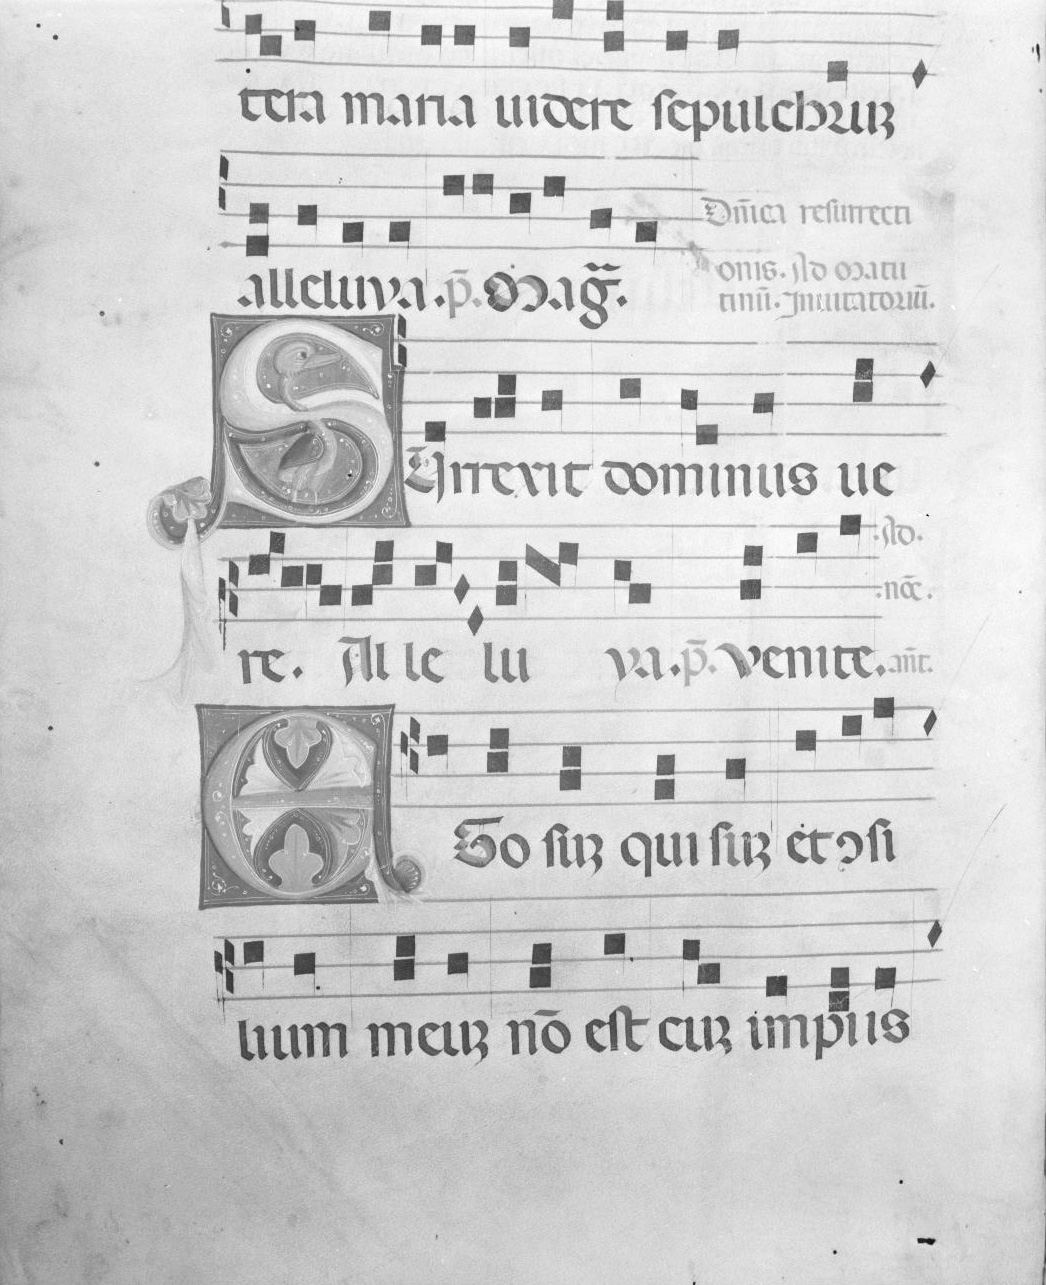 tera maria uidere sepulchruꝫ
alleluya. p̄. Mag̃.
Dñica resurrecti
onis. Ad matu
tinũ. Inuitatoriũ.
Surrexit dominus ue
re. Alleluya. p̄. Venite. añt.
Ad.
noc̃.
Ego suꝫ qui suꝫ et ↄsi
lium meuꝫ nō est cuꝫ impiis